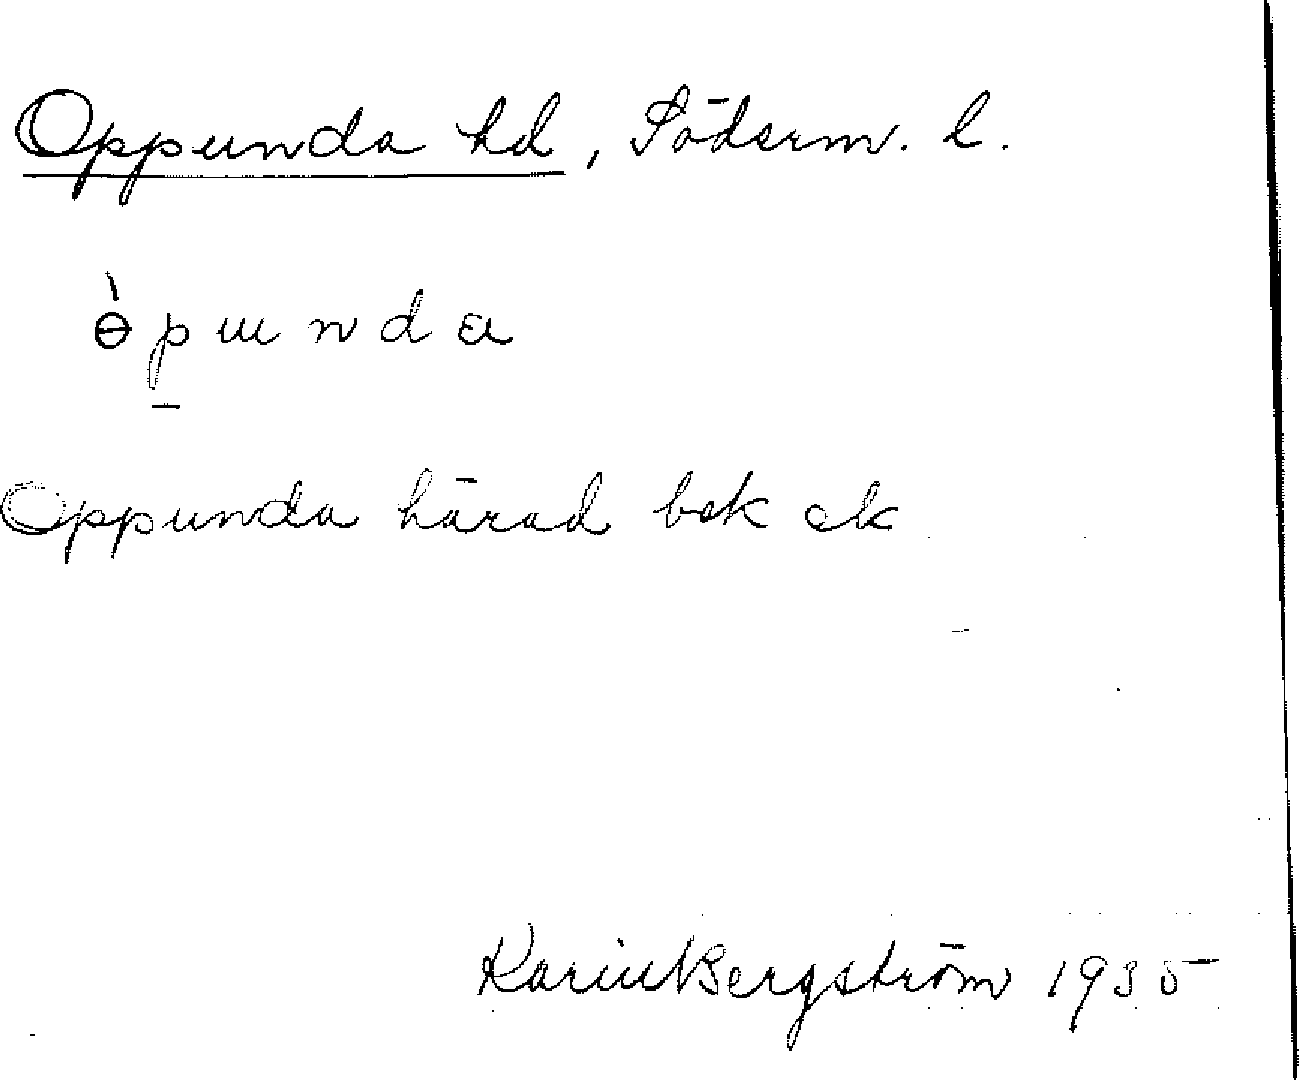 Oppunda hd, Söderm. l.
ɵ̀p̠ɯnda
Oppunda härad bek ek
Karin Bergström 1935